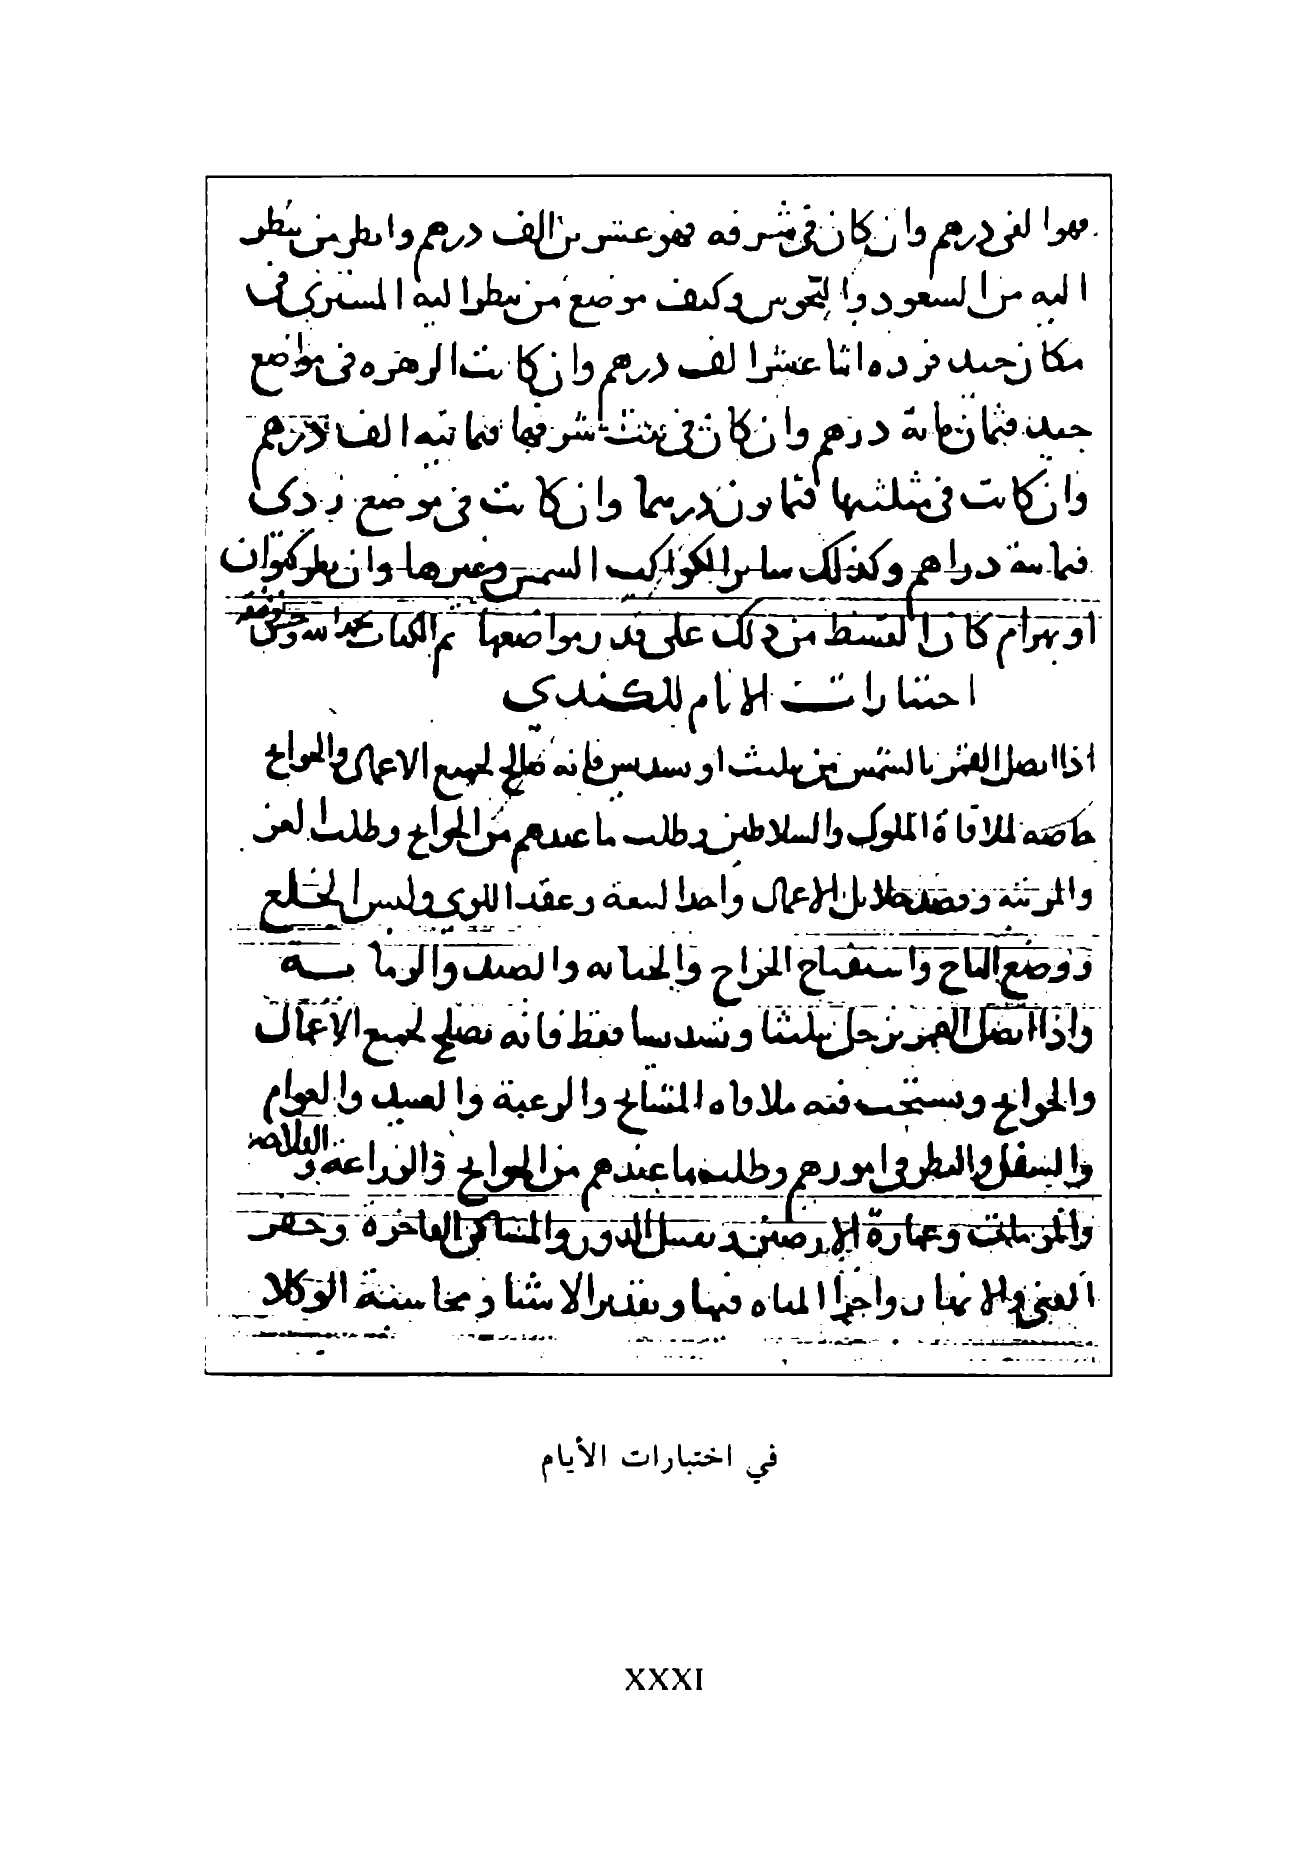 فهو الفى درهم وان كان فى شرفه فهو عشرين الف درهم وانظر من ينظر
اليه من السعود والنحوس وكيف موضع من ينظر اليه المشترى فى
مكان جيد فزده اثنا عشر الف درهم وان كانت الزهره فى مواضع
جيده فثمان مايه درهم وان كان فى بيت شرفها فثمانيه الف درهم
وان كانت فى مثلثتها فثمانون درهما وان كانت فى موضع ردى
فثمانية دراهم وكذلك ساير الكواكب الشمس وغيرها وان نظر كيوان
او بهرام كان القسط من ذلك على قدر مواضعها تم الكتاب بحمد الله وحسن توفيقه
اختيارات الايام للكندي
اذا اتصل القمر بالشمس من تثليث او تسديس فانه صالح لجميع الاعمال والحوايج
خاصه لملاقاة الملوك والسلاطين وطلب ما عندهم من الحوايج وطلب العز
والمرتبه وقصد جلايل الاعمال واخذ البيعة وعقد اللوى ولبس الخلع
ووضع التاج واستفتاح الخراج والجبايه والصيد والرمايـــه
واذا اتصل القمر بزحل تثليثا وتسديسا فقط فانه يصلح لجميع الاعمال
والحوايج ويستحب فيه ملاقاه المشايخ والرعية والعبيد والعوام
والسفل والنظر فى امورهم وطلب ما عندهم من الحوايج والزراعه والفلاحه
وعمارة الارضين الدور والمساكن الفاخرة وحفر
القنى والانهار واجرا المياه فيها وتقدير الاشيا ومحاسبة الوكلا
في اختيارات الأيام
XXXI